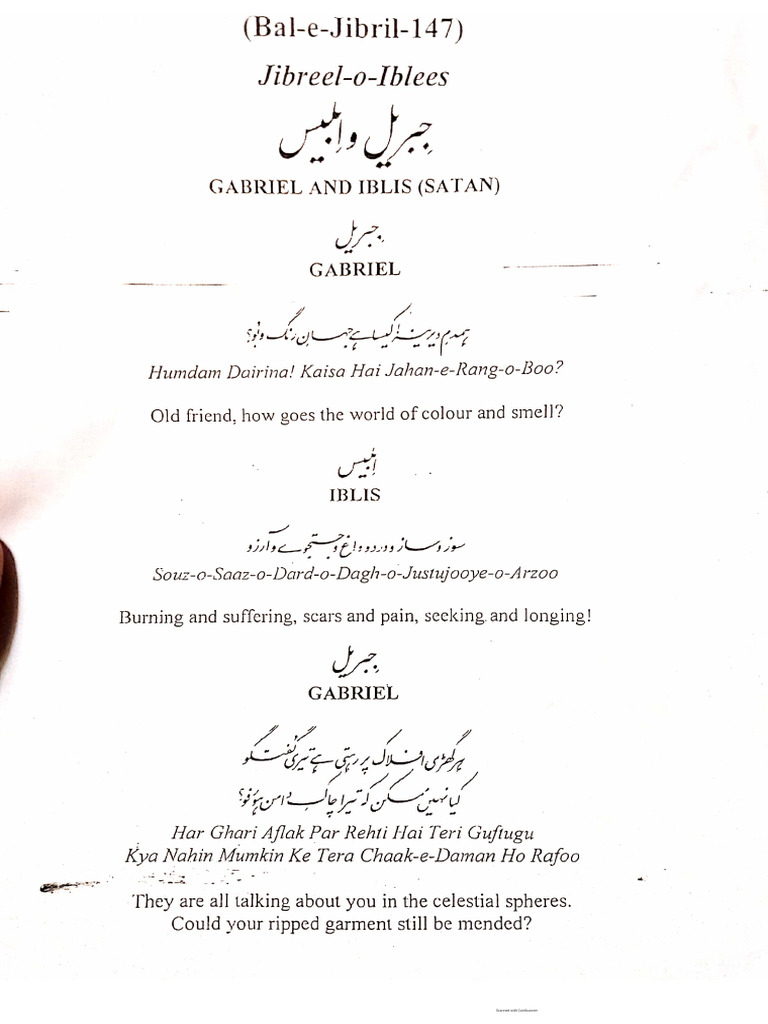 (Bal-e-Jibril-147)
Jibreel-o-Iblees
جبریل و اِبلیس
GABRIEL AND IBLIS (SATAN)
جبریل
GABRIEL
ہمدمِ دیرینہ! کیسا ہے جہانِ رنگ و بُو؟
Humdam Dairina! Kaisa Hai Jahan-e-Rang-o-Boo?
Old friend, how goes the world of colour and smell?
اِبلیس
IBLIS
سوز و ساز و درد و داغ و جستجوے و آرزو
Souz-o-Saaz-o-Dard-o-Dagh-o-Justujooye-o-Arzoo
Burning and suffering, scars and pain, seeking and longing!
جبریل
GABRIEL
ہر گھڑی افلاک پر رہتی ہے تیری گفتگو
کیا نہیں ممکن کہ تیرا چاکِ دامن ہو رفو؟
Har Ghari Aflak Par Rehti Hai Teri Guftugu
Kya Nahin Mumkin Ke Tera Chaak-e-Daman Ho Rafoo
They are all talking about you in the celestial spheres.
Could your ripped garment still be mended?
Scanned with CamScanner